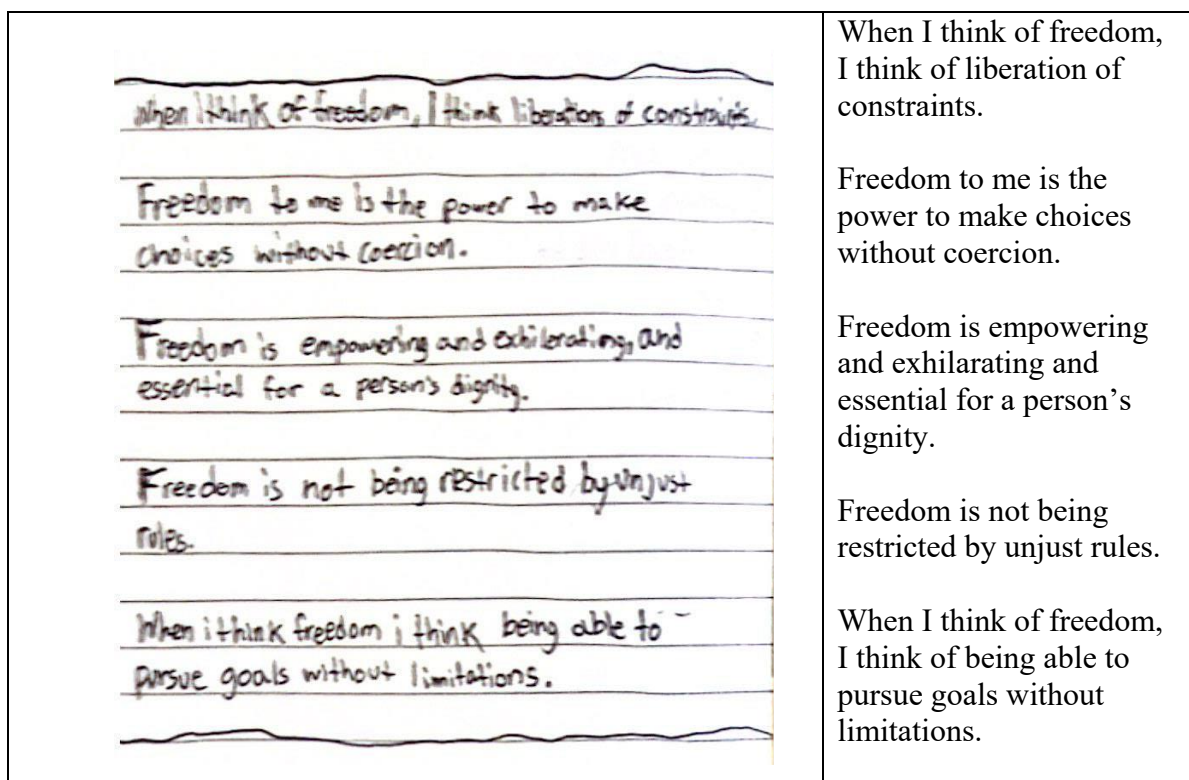 When I think of freedom, I think liberations of constraints.
Freedom to me is the power to make
choices without coercion.
Freedom is empowering and exhilerating, and
essential for a person's dignity.
Freedom is not being restricted by unjust
rules.
When i think freedom i think being able to
pursue goals without limitations.
When I think of freedom,
I think of liberation of
constraints.
Freedom to me is the
power to make choices
without coercion.
Freedom is empowering
and exhilarating and
essential for a person’s
dignity.
Freedom is not being
restricted by unjust rules.
When I think of freedom,
I think of being able to
pursue goals without
limitations.